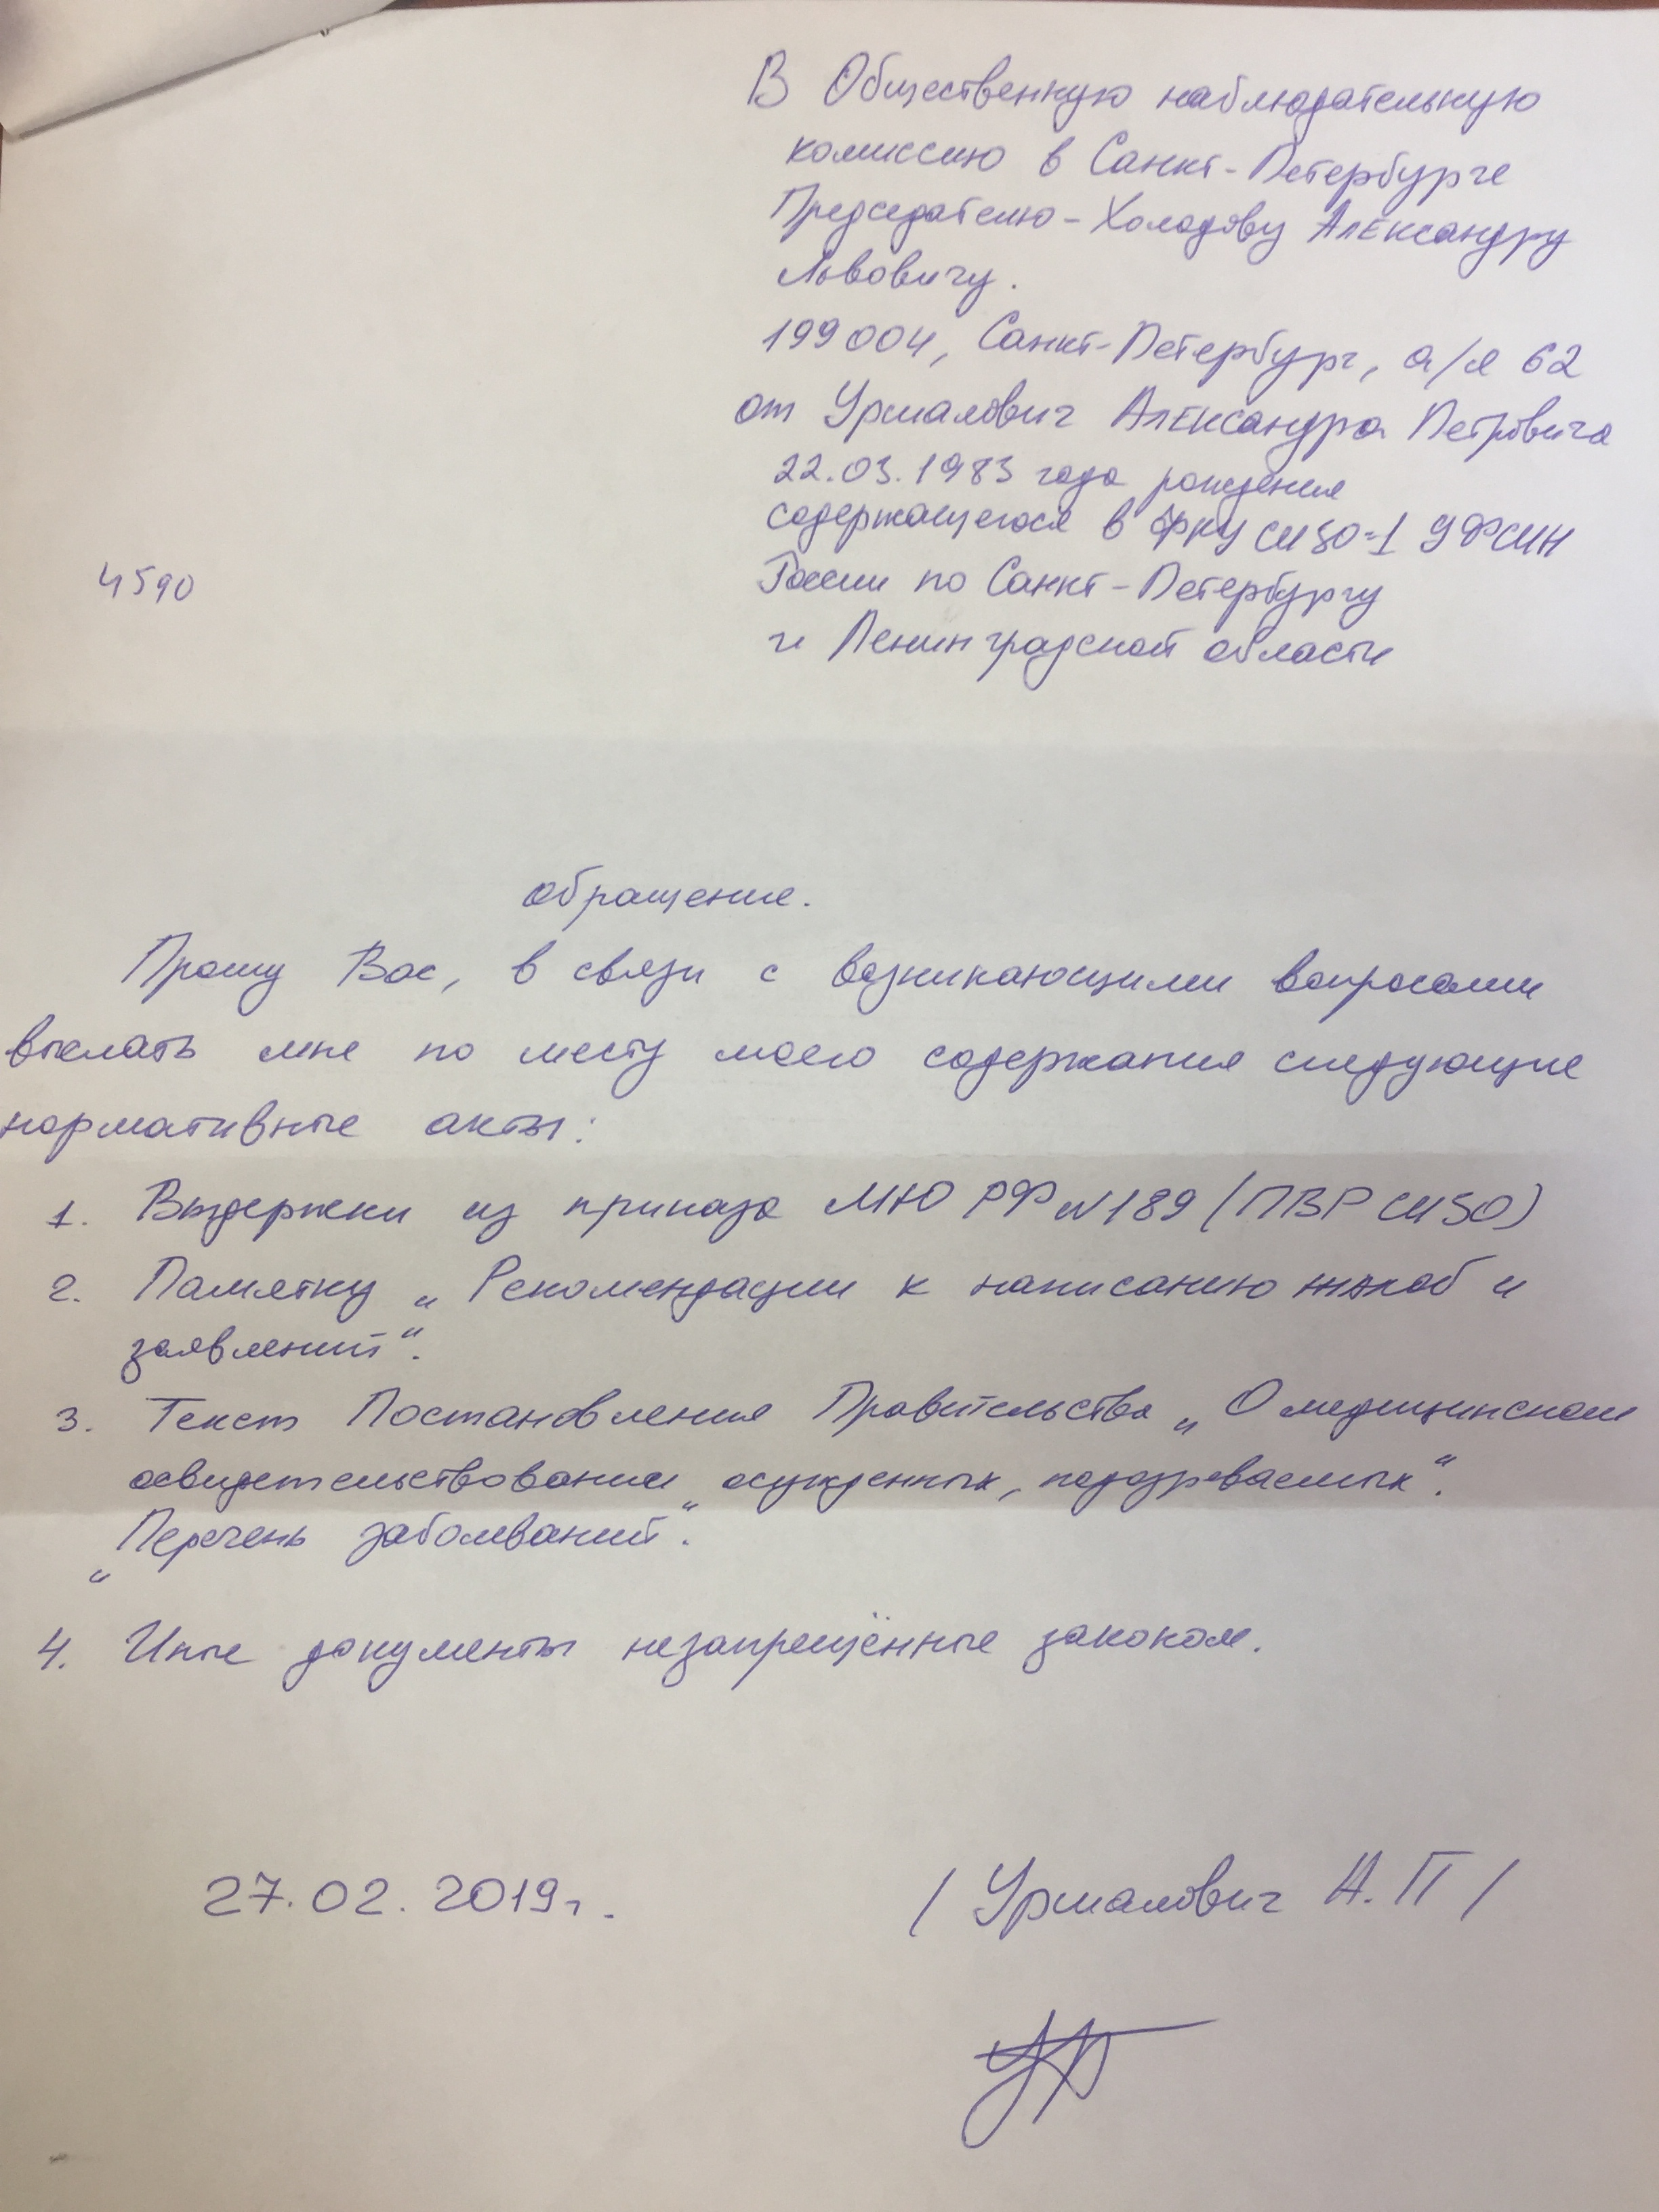 В Общественную наблюдательную
комиссию в Санкт-Петербурге
Председателю - Холодову Александру
Львовичу.
199004, Санкт-Петербург, а/я 62
от Урмалович Александра Петровича
22.03.1983 года рождения
содержащегося в ФКУ СИЗО-1 УФСИН
4590
России по Санкт-Петербургу
и Ленинградской области
обращение.
Прошу Вас, в связи с возникающими вопросами
выслать мне по месту моего содержания следующие
нормативные акты:
1. Выдержки из приказа МЮ РФ №189 (ПВР СИЗО)
2. Памятку „Рекомендации к написанию жалоб и
заявлений“.
3. Текст Постановления Правительства „О медицинском
освидетельствовании осужденных, подозреваемых“.
„Перечень заболеваний“.
4. Иные документы незапрещённые законом.
27.02.2019г. / Урмалович А.П /